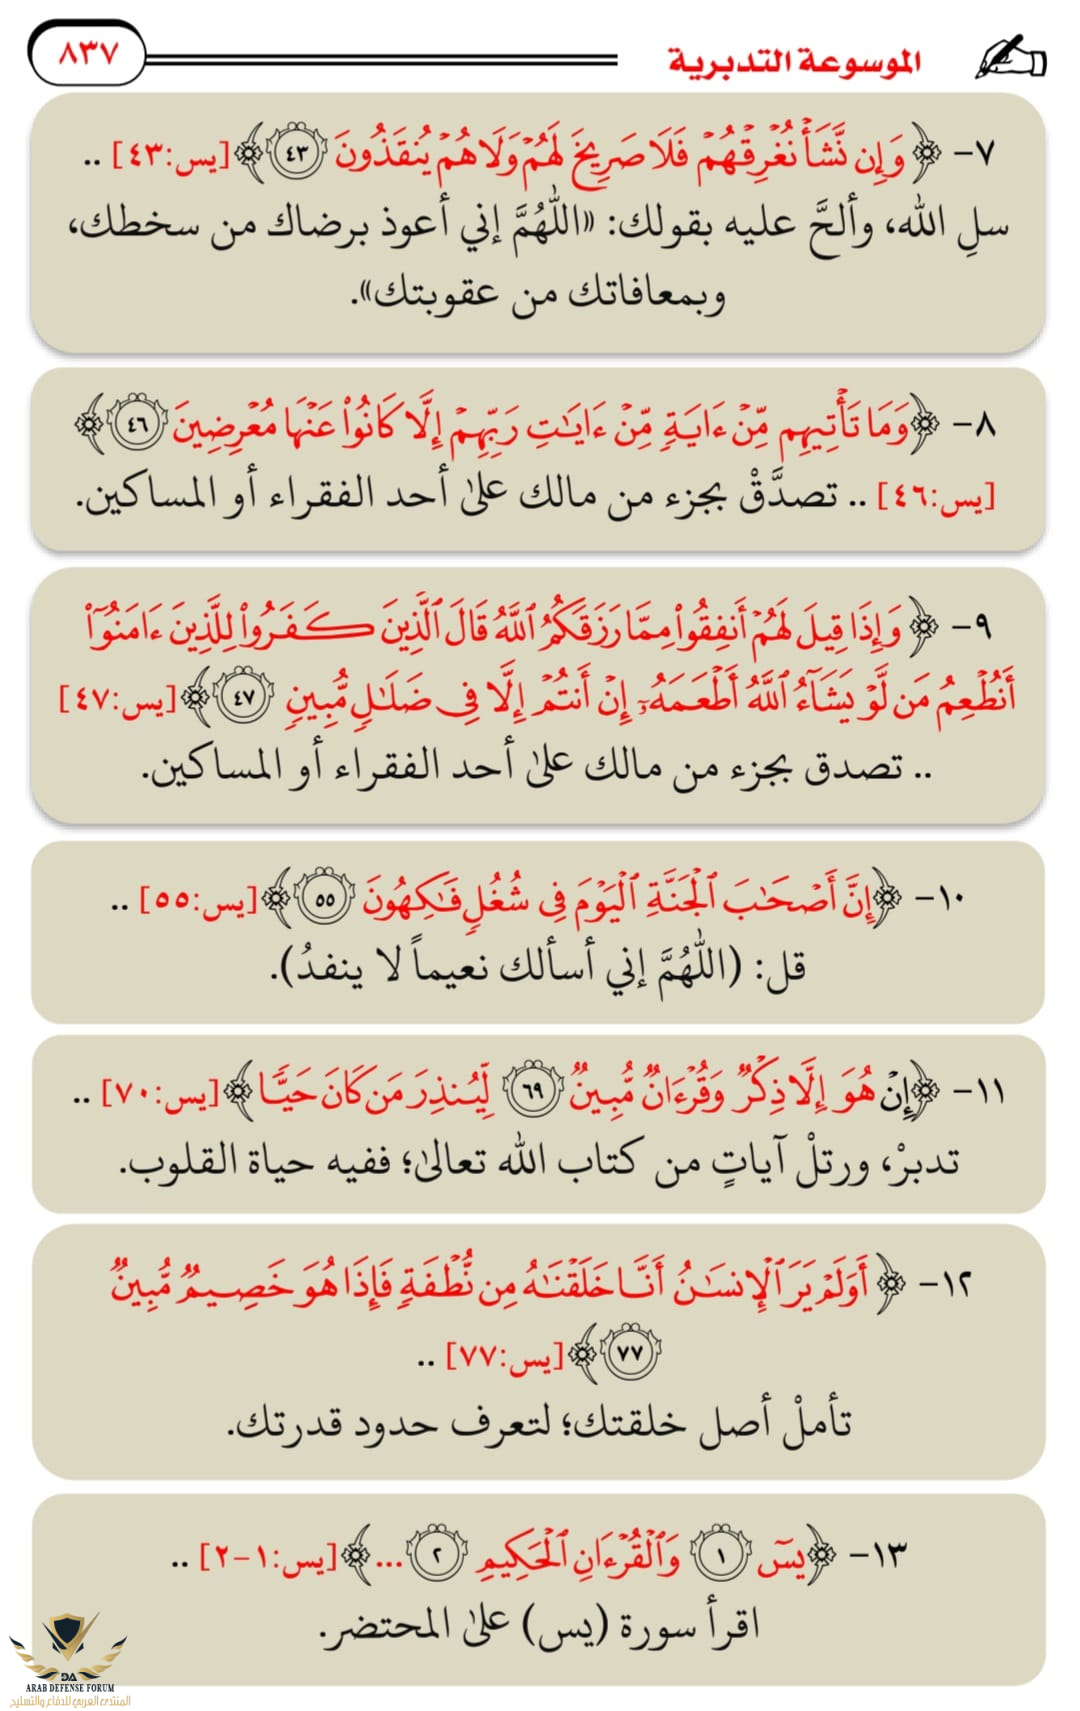 الموسوعة التدبرية ٨٣٧
٧- ﴿وَإِن نَّشَأْ نُغْرِقْهُمْ فَلَا صَرِيخَ لَهُمْ وَلَا هُمْ يُنقَذُونَ ٤٣﴾ [يس:٤٣] ..
سلِ الله، وألحَّ عليه بقولك: «اللَّهُمَّ إني أعوذ برضاك من سخطك،
وبمعافاتك من عقوبتك».
٨- ﴿وَمَا تَأْتِيهِم مِّنْ ءَايَةٍ مِّنْ ءَايَٰتِ رَبِّهِمْ إِلَّا كَانُوا۟ عَنْهَا مُعْرِضِينَ ٤٦﴾
[يس:٤٦] .. تصدَّقْ بجزء من مالك علىٰ أحد الفقراء أو المساكين.
٩- ﴿وَإِذَا قِيلَ لَهُمْ أَنفِقُوا۟ مِمَّا رَزَقَكُمُ ٱللَّهُ قَالَ ٱلَّذِينَ كَفَرُوا۟ لِلَّذِينَ ءَامَنُوٓا۟
أَنُطْعِمُ مَن لَّوْ يَشَآءُ ٱللَّهُ أَطْعَمَهُۥٓ إِنْ أَنتُمْ إِلَّا فِى ضَلَٰلٍ مُّبِينٍ ٤٧﴾ [يس:٤٧]
.. تصدق بجزء من مالك علىٰ أحد الفقراء أو المساكين.
١٠- ﴿إِنَّ أَصْحَٰبَ ٱلْجَنَّةِ ٱلْيَوْمَ فِى شُغُلٍ فَٰكِهُونَ ٥٥﴾ [يس:٥٥] ..
قل: (اللَّهُمَّ إني أسألك نعيماً لا ينفدُ).
١١- ﴿إِنْ هُوَ إِلَّا ذِكْرٌ وَقُرْءَانٌ مُّبِينٌ ٦٩ لِّيُنذِرَ مَن كَانَ حَيًّا﴾ [يس:٧٠] ..
تدبرْ، ورتلْ آياتٍ من كتاب الله تعالىٰ؛ ففيه حياة القلوب.
١٢- ﴿أَوَلَمْ يَرَ ٱلْإِنسَٰنُ أَنَّا خَلَقْنَٰهُ مِن نُّطْفَةٍ فَإِذَا هُوَ خَصِيمٌ مُّبِينٌ
٧٧﴾ [يس:٧٧] ..
تأملْ أصل خلقتك؛ لتعرف حدود قدرتك.
١٣- ﴿يسٓ ١ وَٱلْقُرْءَانِ ٱلْحَكِيمِ ٢ ...﴾ [يس:١-٢] ..
اقرأ سورة (يس) علىٰ المحتضر.
DA
ARAB DEFENSE FORUM
المنتدى العربي للدفاع والتسليح